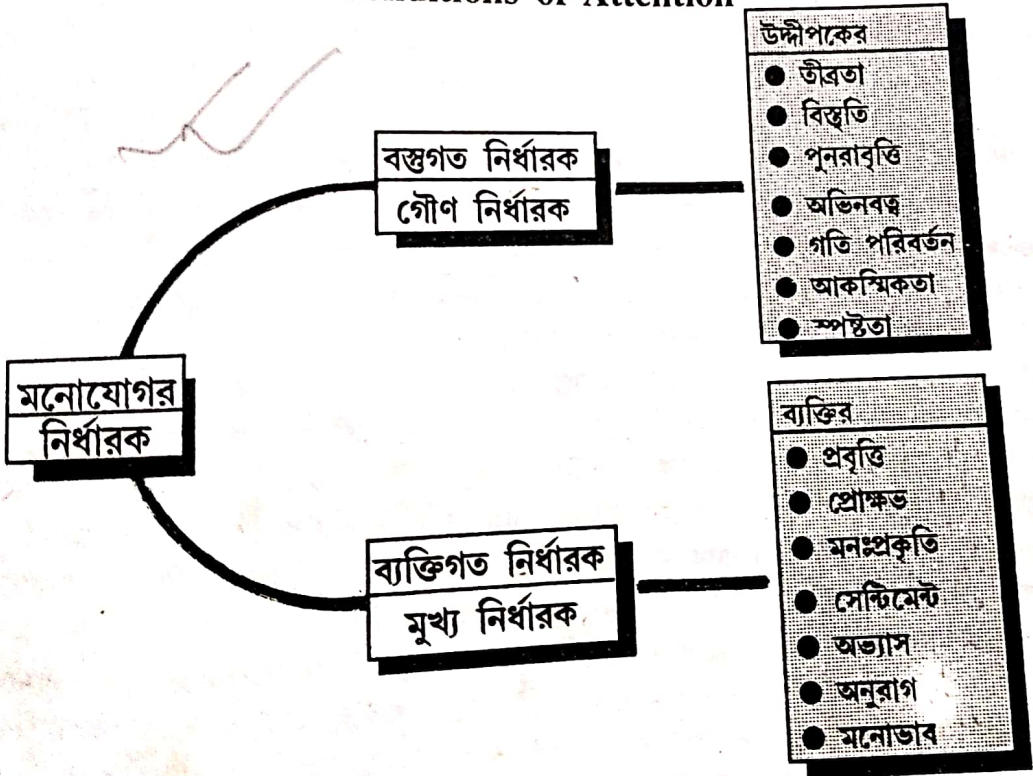 of Attention
মনোযোগর
নির্ধারক
বস্তুগত নির্ধারক
গৌণ নির্ধারক
উদ্দীপকের
● তীব্রতা
● বিস্তৃতি
● পুনরাবৃত্তি
● অভিনবত্ব
● গতি পরিবর্তন
● আকস্মিকতা
● স্পষ্টতা
ব্যক্তিগত নির্ধারক
মুখ্য নির্ধারক
ব্যক্তির
● প্রবৃত্তি
● প্রোক্ষভ
● মনঃপ্রকৃতি
● সেন্টিমেন্ট
● অভ্যাস
● অনুরাগ
● মনোভাব